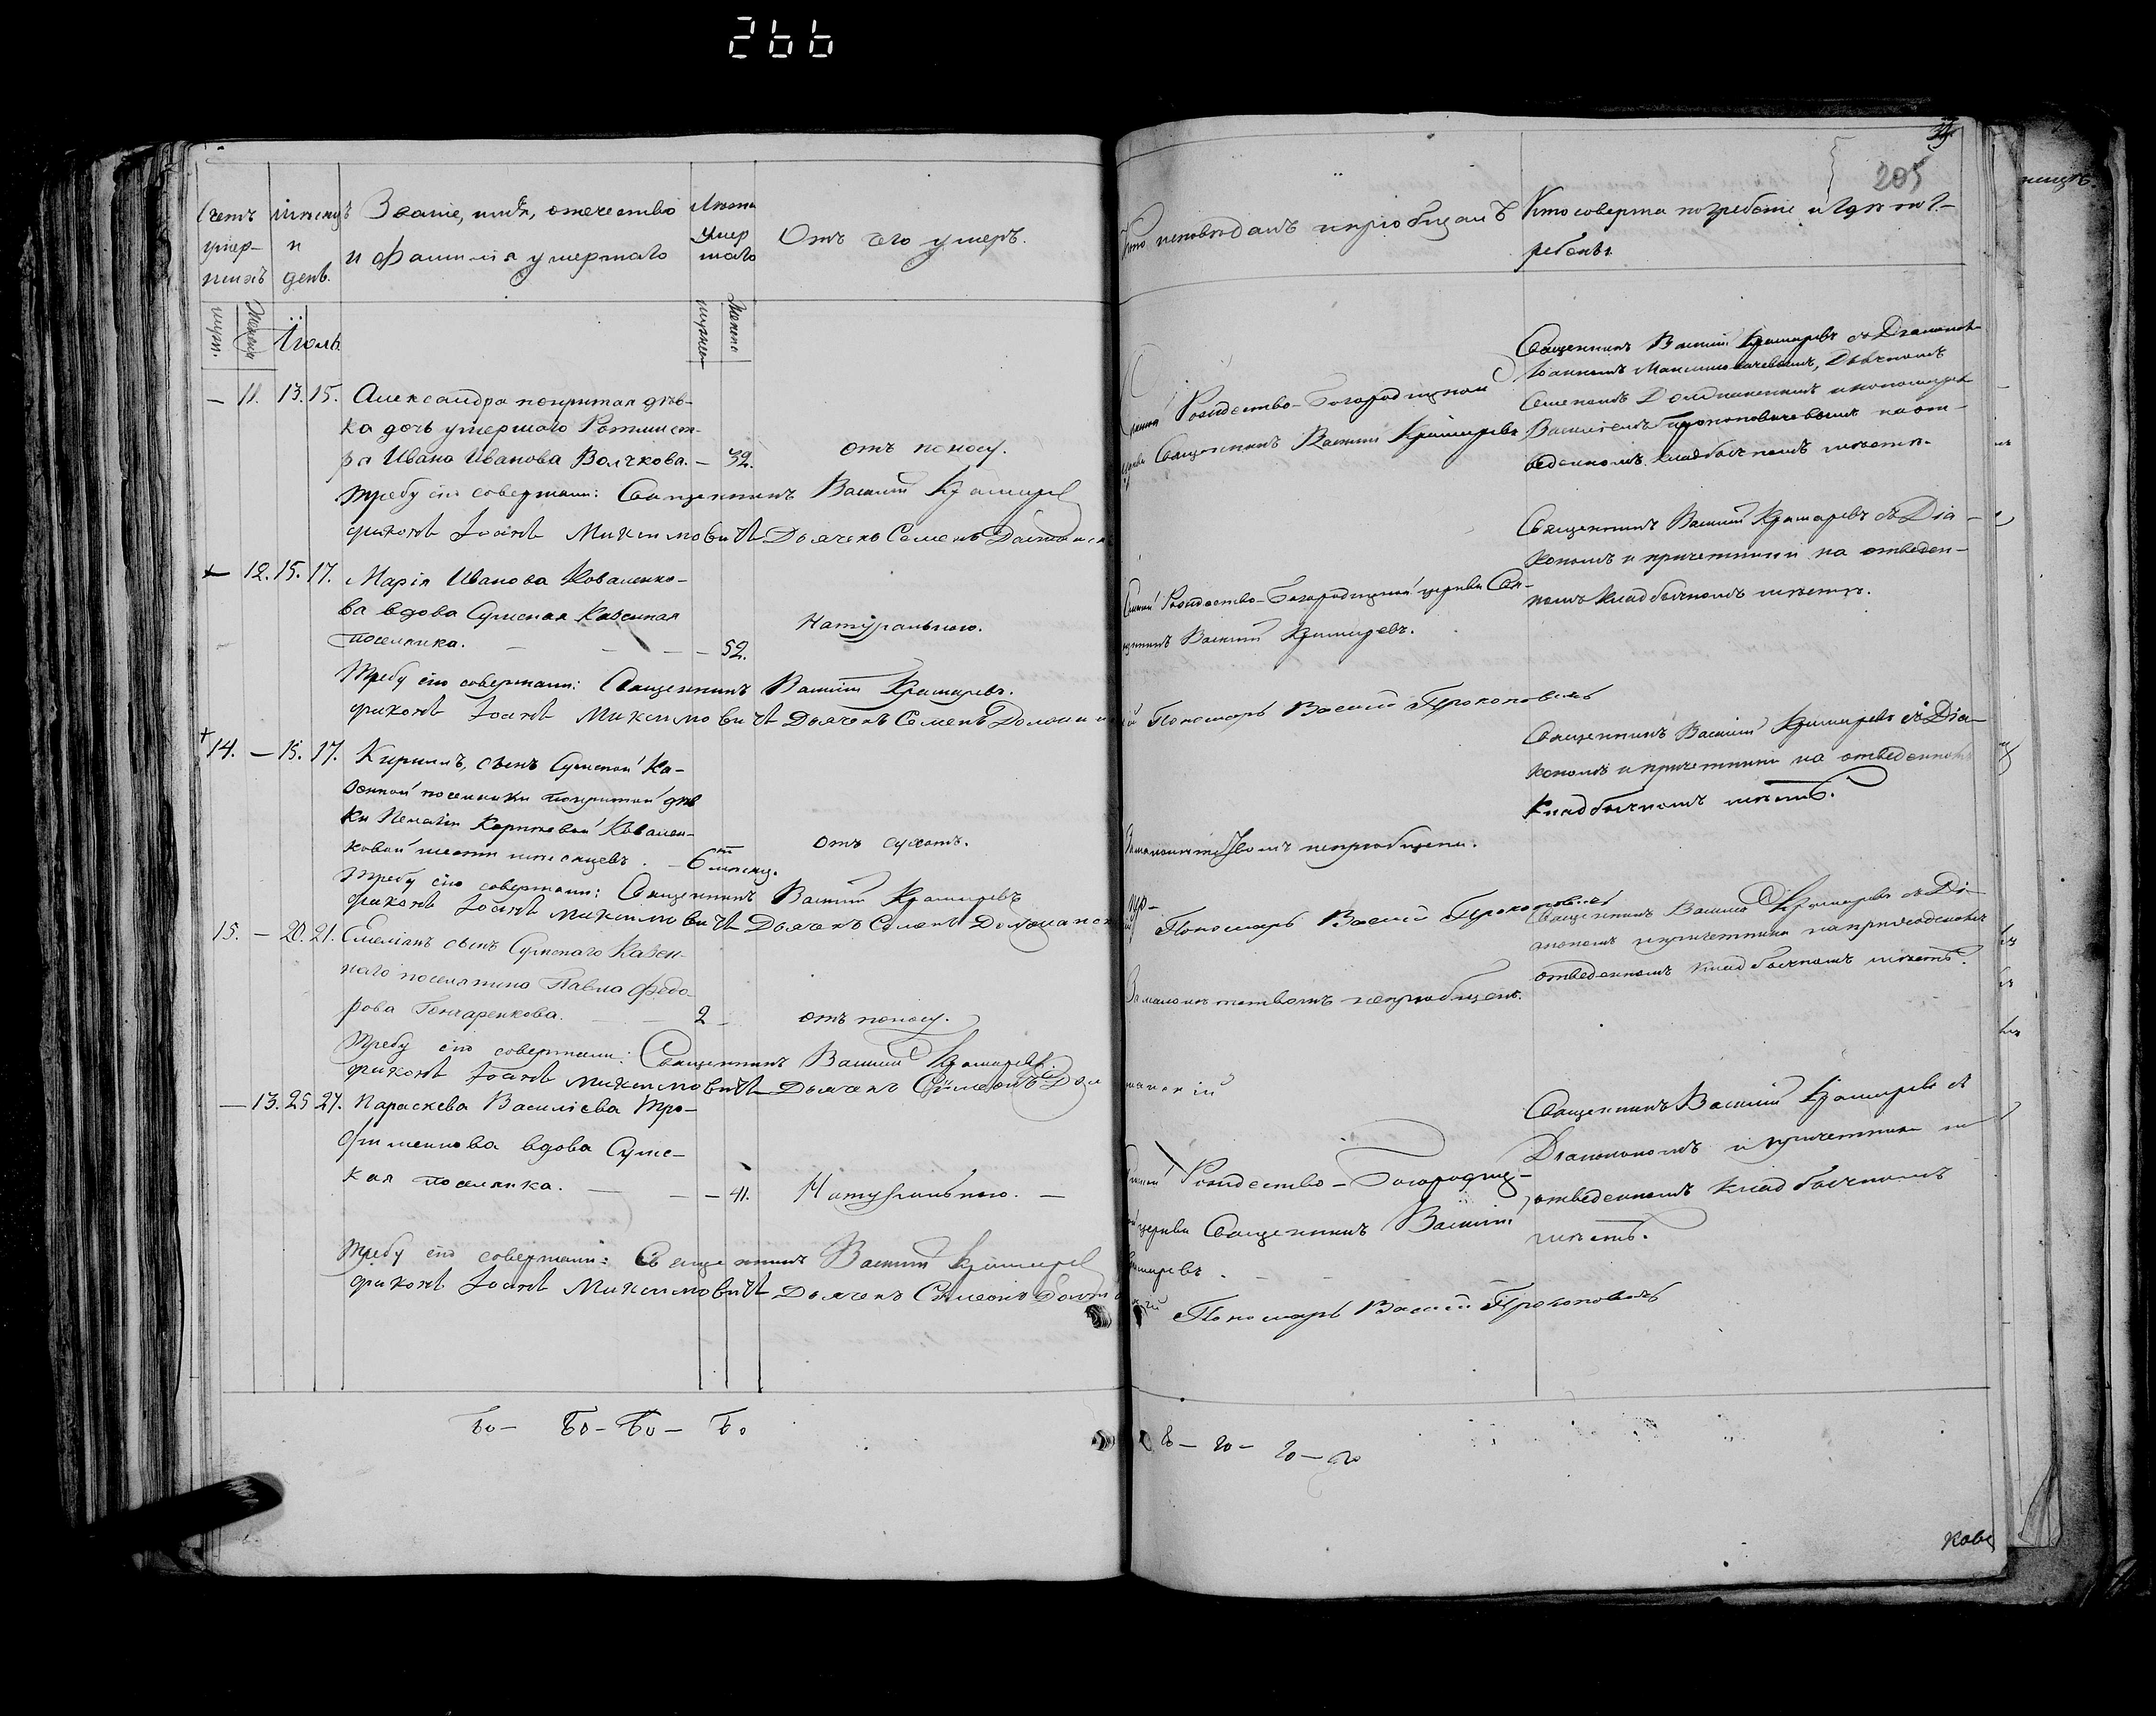 266
39
205
Счетъ умер-шихъ
мѣсяцъ и день.
Званіе, имя, отечество
и фамилія умершаго
Лѣта умер шаго
Отъ чего умеръ.
Кто исповѣдалъ и пріобщалъ
Кто соверша погребеніе и гдѣ пог-
ребены.
мужи.
Женска
Іюль
мужеск
Женско
— 11. 13. 15. Александра покрытая дѣв-
ка дочь умершаго Ротмист-
ра Ивана Иванова Волчкова. — 32.
отъ поносу.
Рождество-Богородичной
церкви Священникъ Василій Крамаревъ
Священникъ Василій Крамаревъ съ Діакономъ
Іоанномъ Максимовичевымъ, Дьячкомъ
Семеномъ Должанскимъ и пономаремъ
Василіемъ Прокоповичевымъ на от-
веденномъ кладбичномъ мѣстѣ.
Требу сію совершали: Священникъ Василій Крамаревъ
диконъ Іоанъ Максимовичъ Дьячекъ Семенъ
— 12. 15. 17. Марія Иванова Коваленко-
ва вдова Сумская Казенная
поселянка. — — — 52.
Натурально.
Рождество-Богородичной церкви Свя-
щенникъ Василій Крамаревъ.
Священникъ Василій Крамаревъ съ Діа-
кономъ и причетники на отведен-
номъ кладбичномъ мѣстѣ.
Требу сію совершали: Священникъ Василій Крамаревъ.
диконъ Іоанъ Максимовичъ Дьячекъ Семенъ
Пономарь Василій Прокоповичъ
14. — 15. 17. Кириллъ, сынъ Сумской Ка-
зенной поселянки покрытой дѣв
ки Пелагіи Карповой Ковален-
ковой шести мѣсяцевъ. — 6 мѣсяц.
отъ сухотъ.
За малолѣтствомъ непріобщенъ.
Священникъ Василій Крамаревъ съ Діа-
кономъ и причетники на отведенномъ
кладбичномъ мѣстѣ.
Требу сію совершали: Священникъ Василій Крамаревъ
диконъ Іоанъ Максимовичъ Дьячекъ Семенъ
Пономарь Василій Прокоповичъ
15. — 20. 21. Емеліянъ сынъ Сумскаго Казен-
наго поселянина Павла Федо-
рова Гончаренкова. — — 2 —
отъ поносу.
За малолѣтствомъ непріобщенъ.
Священникъ Василій Крамаревъ съ Ді-
акономъ и причетники на приходскомъ
отведенномъ кладбичномъ мѣстѣ.
Требу сію совершали: Священникъ Василій Крамаревъ.
диконъ Іоанъ Максимовичъ Дьячекъ Симеонъ
— 13. 25 27. Параскева Василіева Тро-
фименкова вдова Сумс-
кая поселянка. — — — 41.
Натурально. —
Рождество-Богородиц-
церкви Священникъ Василій
Крамаревъ. —
Священникъ Василій Крамаревъ съ
Діакономъ и причетники на
отведенномъ кладбичномъ
мѣстѣ.
Требу сію совершали: Священникъ Василій Крамаревъ
диконъ Іоанъ Максимовичъ Дьячекъ Симеонъ
Пономарь Василій Прокоповичъ